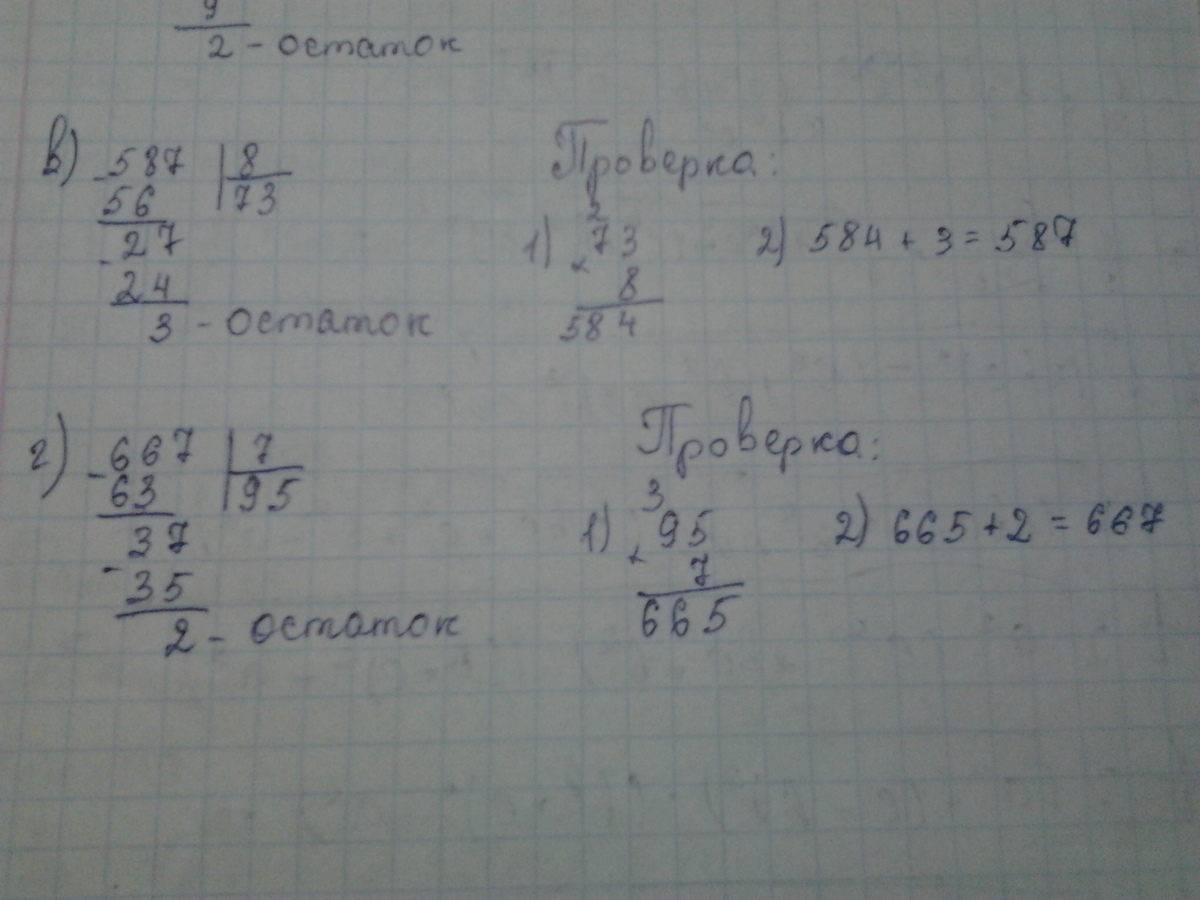 9
2 - остаток
в) - 587 | 8
56 | 73
- 27
24
3 - остаток
Проверка:
2
1) 73
× 8
584
2) 584 + 3 = 587
г) - 667 | 7
63 | 95
- 37
35
2 - остаток
Проверка:
3
1) 95
× 7
665
2) 665 + 2 = 667